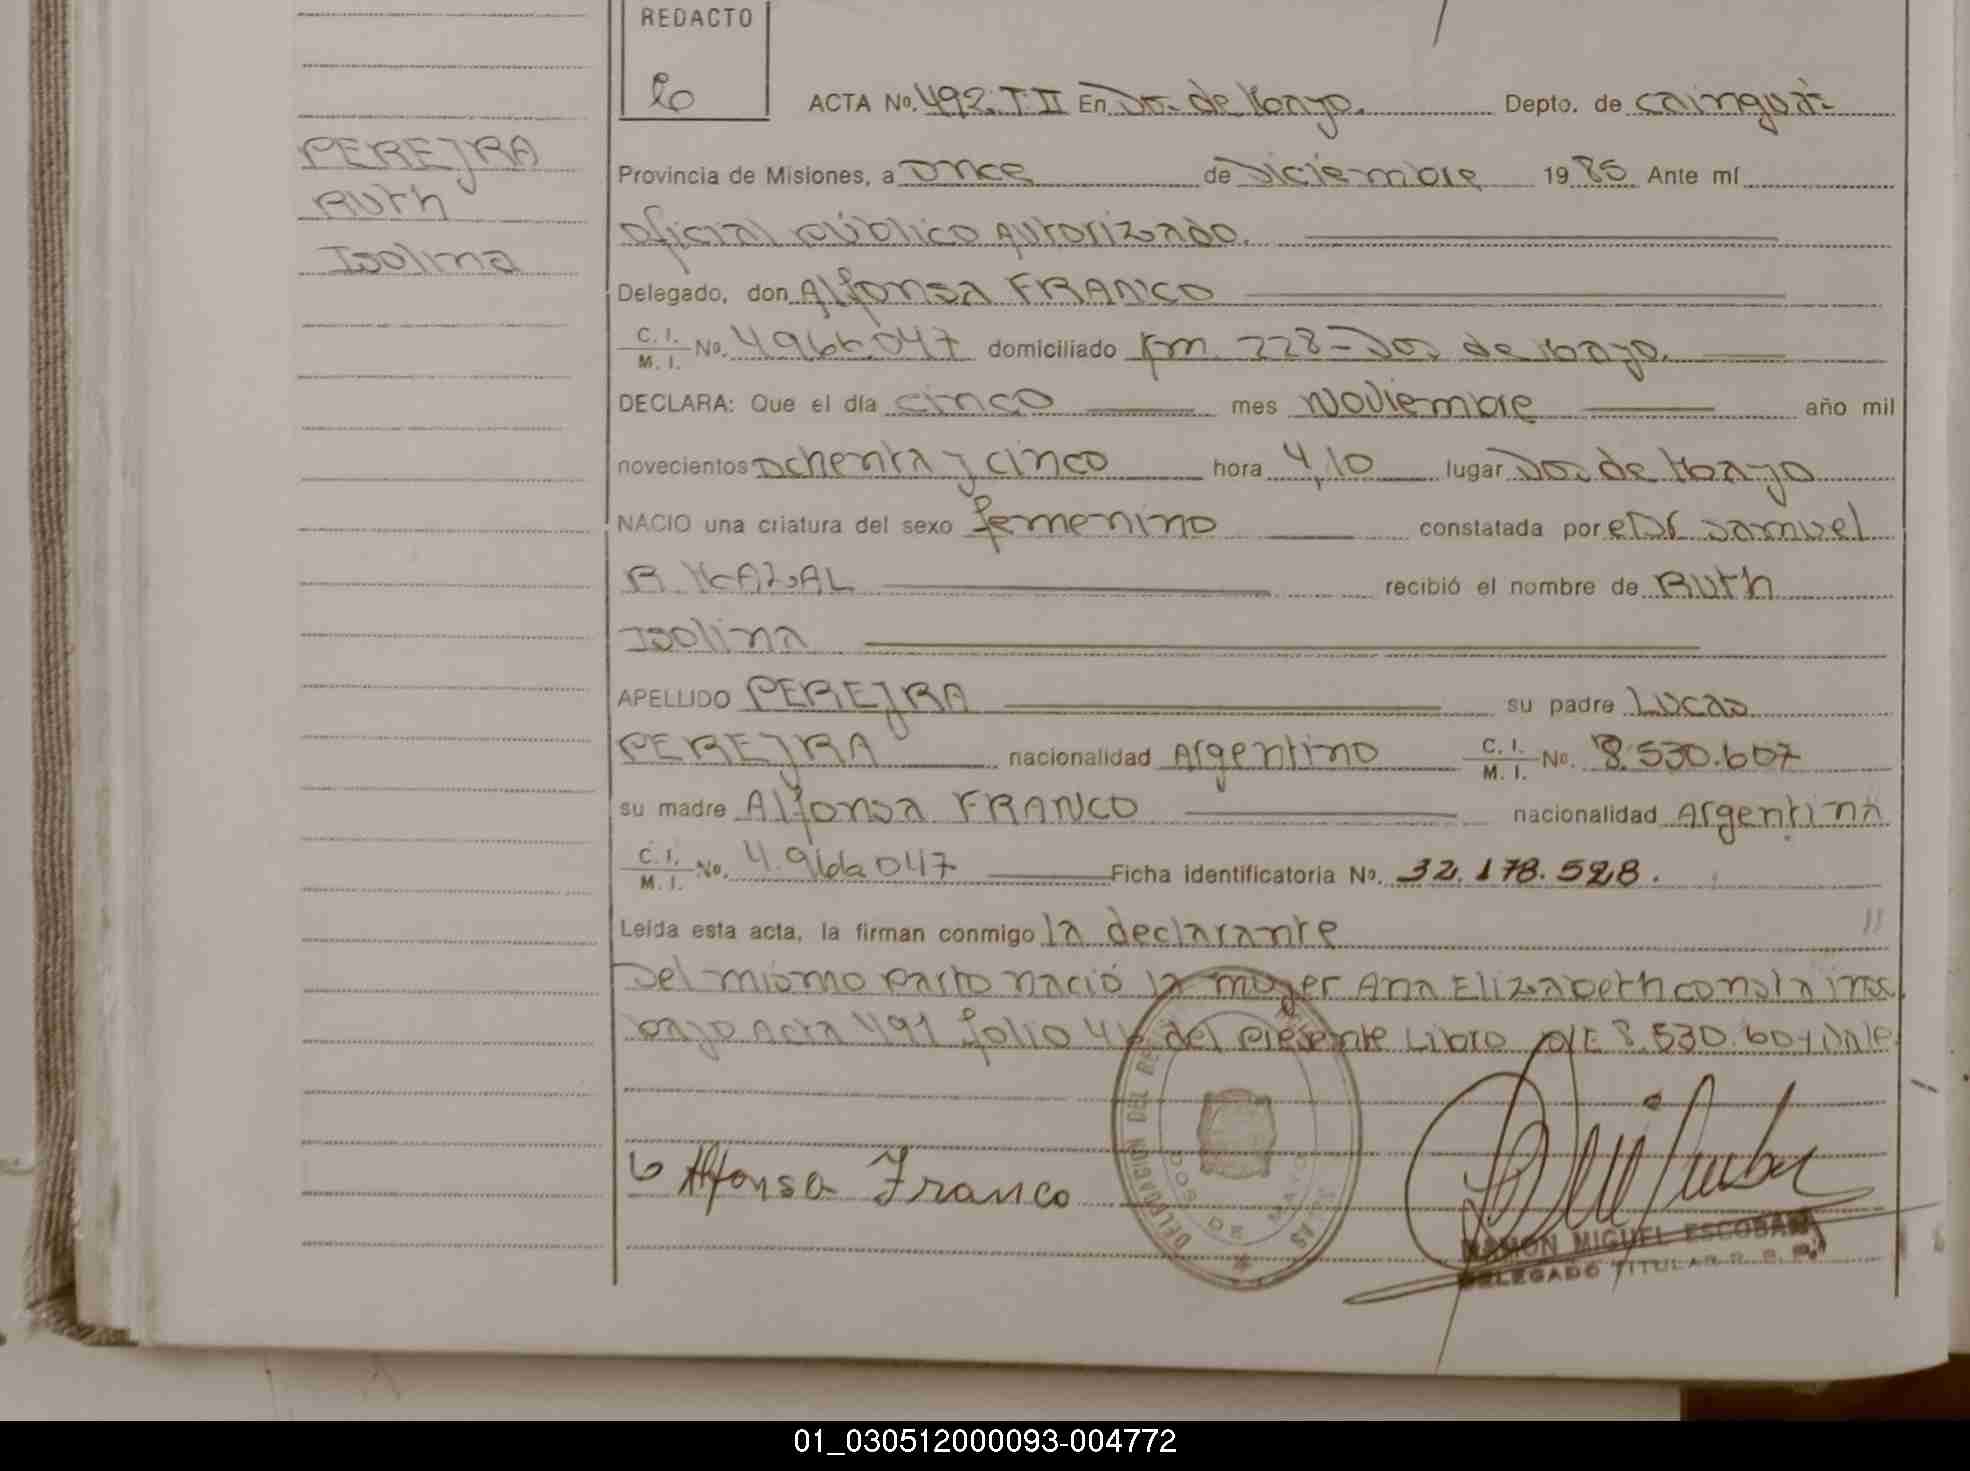 REDACTO
lo
ACTA No. 492. T II En Dos de Mayo. Depto. de Cainguás
PEREJRA
Ruth
Isolina
Provincia de Misiones, a once de Diciembre 1985 Ante mí
oficial público Autorizado.
Delegado, don Alfonsa FRANCO
C. I.
M. I. No. 4966.047 domiciliado Km. 228 - Dos de Mayo.
DECLARA: Que el día cinco mes Noviembre año mil
novecientos ochenta y cinco hora 4,10 lugar Dos de Mayo
NACIO una criatura del sexo femenino constatada por el Dr Samuel
R. recibió el nombre de Ruth
Isolina
APELLIDO PEREJRA su padre Lucas
PEREJRA nacionalidad Argentino C. I.
M. I. No. 8.530.607
su madre Alfonsa FRANCO nacionalidad Argentina
C. I.
M. I. No. 4.966.047 Ficha identificatoria No. 32.178.528.
Leída esta acta, la firman conmigo la declarante //
Del mismo parto nació la mujer Ana Elizabeth consta insc.
bajo Acta 491 folio 46 del presente Libro 8.530.607 Vale
Alfonsa Franco
DELEGACION DEL
DOS DE MAYO
RAMON MIGUEL ESCOBAR
DELEGADO TITULAR R. E. P.
01_030512000093-004772